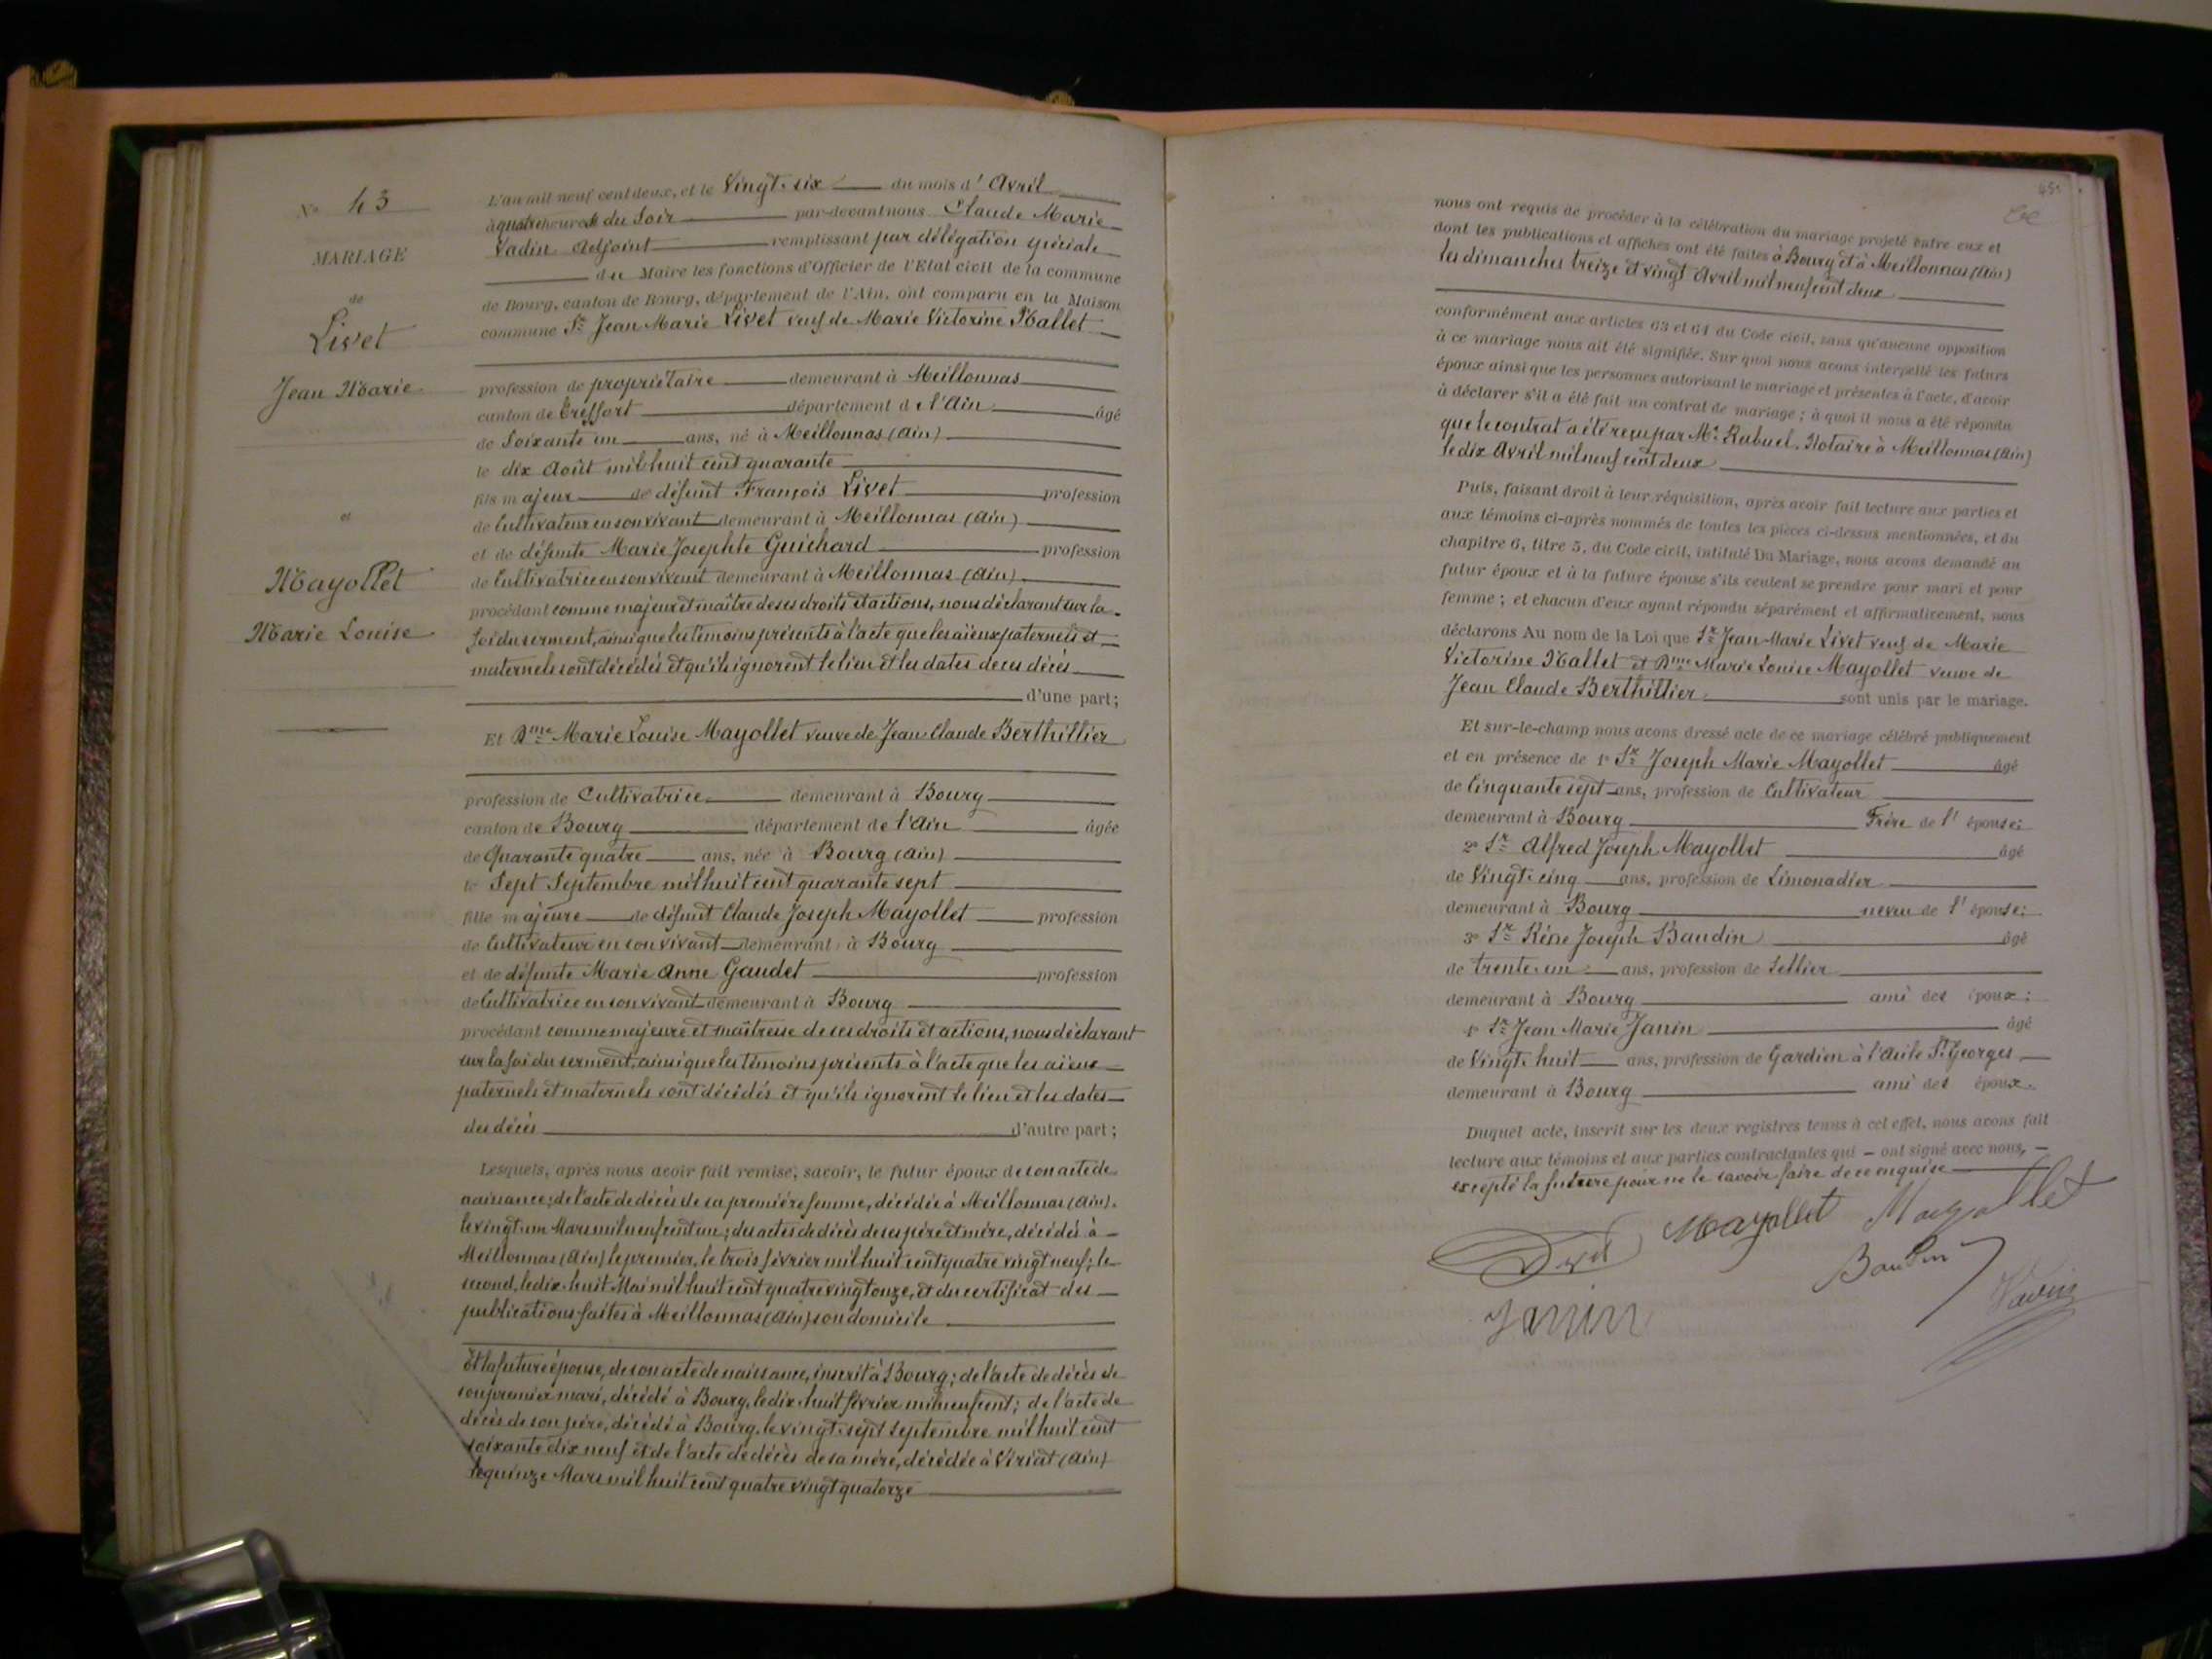 N° 43
MARIAGE
de
Livet
Jean Marie
et
Mayollet
Marie Louise
L'an mil neuf cent deux, et le Vingt-six du mois d'Avril
à quatre heures du Soir par-devant nous Claude Marie
Vadin Adjoint remplissant par délégation spéciale
du Maire les fonctions d'Officier de l'Etat civil de la commune
de Bourg, canton de Bourg, département de l'Ain, ont comparu en la Maison
commune Sr Jean Marie Livet veuf de Marie Victorine Mallet
profession de propriétaire demeurant à Meillonnas
canton de Treffort département de l'Ain âgé
de Soixante un ans, né à Meillonnas (Ain)
le dix Août mil huit cent quarante
fils majeur de défunt François Livet profession
de Cultivateur en son vivant demeurant à Meillonnas (Ain)
et de défunte Marie Josephte Guichard profession
de Cultivatrice en son vivant demeurant à Meillonnas (Ain)
procédant comme majeur et maître de ses droits et actions, nous déclarant sur la
foi du serment, ainsi que les témoins présents à l'acte que les aïeux paternels et
maternels sont décédés et qu'ils ignorent le lieu et les dates de ces décès
d'une part;
Et Dme Marie Louise Mayollet veuve de Jean Claude Berthillier
profession de Cultivatrice demeurant à Bourg
canton de Bourg département de l'Ain âgée
de Quarante quatre ans, née à Bourg (Ain)
le Sept Septembre mil huit cent quarante sept
fille majeure de défunt Claude Joseph Mayollet profession
de Cultivateur en son vivant demeurant à Bourg
et de défunte Marie Anne Gaudet profession
de Cultivatrice en son vivant demeurant à Bourg
procédant comme majeure et maîtresse de ses droits et actions, nous déclarant
sur la foi du serment, ainsi que les témoins présents à l'acte que les aïeux
paternels et maternels sont décédés et qu'ils ignorent le lieu et les dates
des décès d'autre part;
Lesquels, après nous avoir fait remise, savoir, le futur époux de son acte de
naissance; de l'acte de décès de sa première femme, décédée à Meillonnas (Ain).
le vingt-un Mars mil neuf cent un; des actes de décès de ses père et mère, décédés à
Meillonnas (Ain) le premier, le trois février mil huit cent quatre vingt neuf; le
second, le dix-huit Mai mil huit cent quatre vingt onze, et du certificat des
publications faites à Meillonnas (Ain) son domicile
Et la future épouse, de son acte de naissance, inscrit à Bourg; de l'acte de décès de
son premier mari, décédé à Bourg, le dix-huit février mil neuf cent; de l'acte de
décès de son père, décédé à Bourg, le vingt-sept Septembre mil huit cent
soixante dix neuf et de l'acte de décès de sa mère, décédée à Viriat (Ain)
le quinze Mars mil huit cent quatre vingt quatorze
451
nous ont requis de procéder à la célébration du mariage projeté entre eux et
dont les publications et affiches ont été faites à Bourg et à Meillonnas (Ain)
les dimanches treize et vingt Avril mil neuf cent deux
conformément aux articles 63 et 64 du Code civil, sans qu'aucune opposition
à ce mariage nous ait été signifiée. Sur quoi nous avons interpellé les futurs
époux ainsi que les personnes autorisant le mariage et présentes à l'acte, d'avoir
à déclarer s'il a été fait un contrat de mariage; à quoi il nous a été répondu
que le contrat a été reçu par Me Rubuel, Notaire à Meillonnas (Ain)
le dix Avril mil neuf cent deux
Puis, faisant droit à leur réquisition, après avoir fait lecture aux parties et
aux témoins ci-après nommés de toutes les pièces ci-dessus mentionnées, et du
chapitre 6, titre 5, du Code civil, intitulé Du Mariage, nous avons demandé au
futur époux et à la future épouse s'ils veulent se prendre pour mari et pour
femme; et chacun d'eux ayant répondu séparément et affirmativement, nous
déclarons Au nom de la Loi que Sr Jean Marie Livet veuf de Marie
Victorine Mallet et Dme Marie Louise Mayollet veuve de
Jean Claude Berthillier sont unis par le mariage.
Et sur-le-champ nous avons dressé acte de ce mariage célébré publiquement
et en présence de 1° Sr Joseph Marie Mayollet âgé
de Cinquante sept ans, profession de Cultivateur
demeurant à Bourg Frère de l'épouse;
2° Sr Alfred Joseph Mayollet âgé
de Vingt-cinq ans, profession de Limonadier
demeurant à Bourg neveu de l'épouse;
3° Sr Réné Joseph Baudin âgé
de trente-un ans, profession de Sellier
demeurant à Bourg ami des époux;
4° Sr Jean Marie Janin âgé
de Vingt-huit ans, profession de Gardien à l'Asile St Georges
demeurant à Bourg ami des époux.
Duquel acte, inscrit sur les deux registres tenus à cet effet, nous avons fait
lecture aux témoins et aux parties contractantes qui ont signé avec nous,
excepté la future pour ne le savoir faire de ce enquise
Livet Mayollet Mayollet
Baudin
Janin Vadin